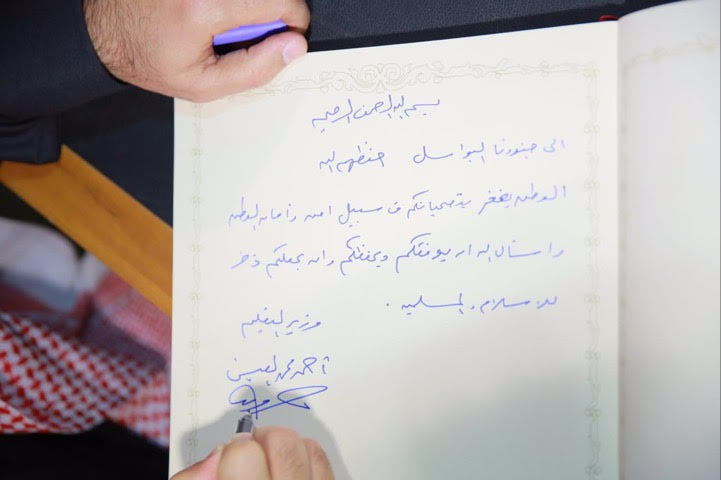 بسم الله الرحمن الرحيم
الى جنودنا البواسل حفظهم الله
الوطن يفخر بتضحياتكم في سبيل امن وأمان الوطن
واسأل الله ان يوفقكم ويحفظكم وان يجعلكم ذخر
للاسلام والمسلمين .
وزير التعليم
أحمد محمد العيسى